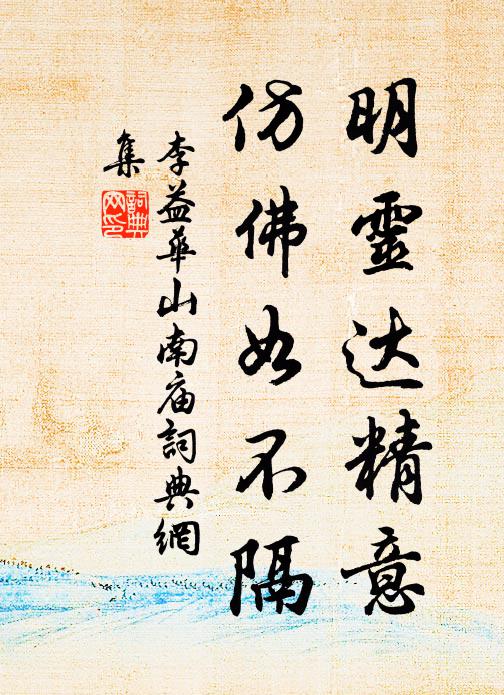 明靈达精意
仿佛如不隔
李益華山南庙詞典網
集
詞典
网印